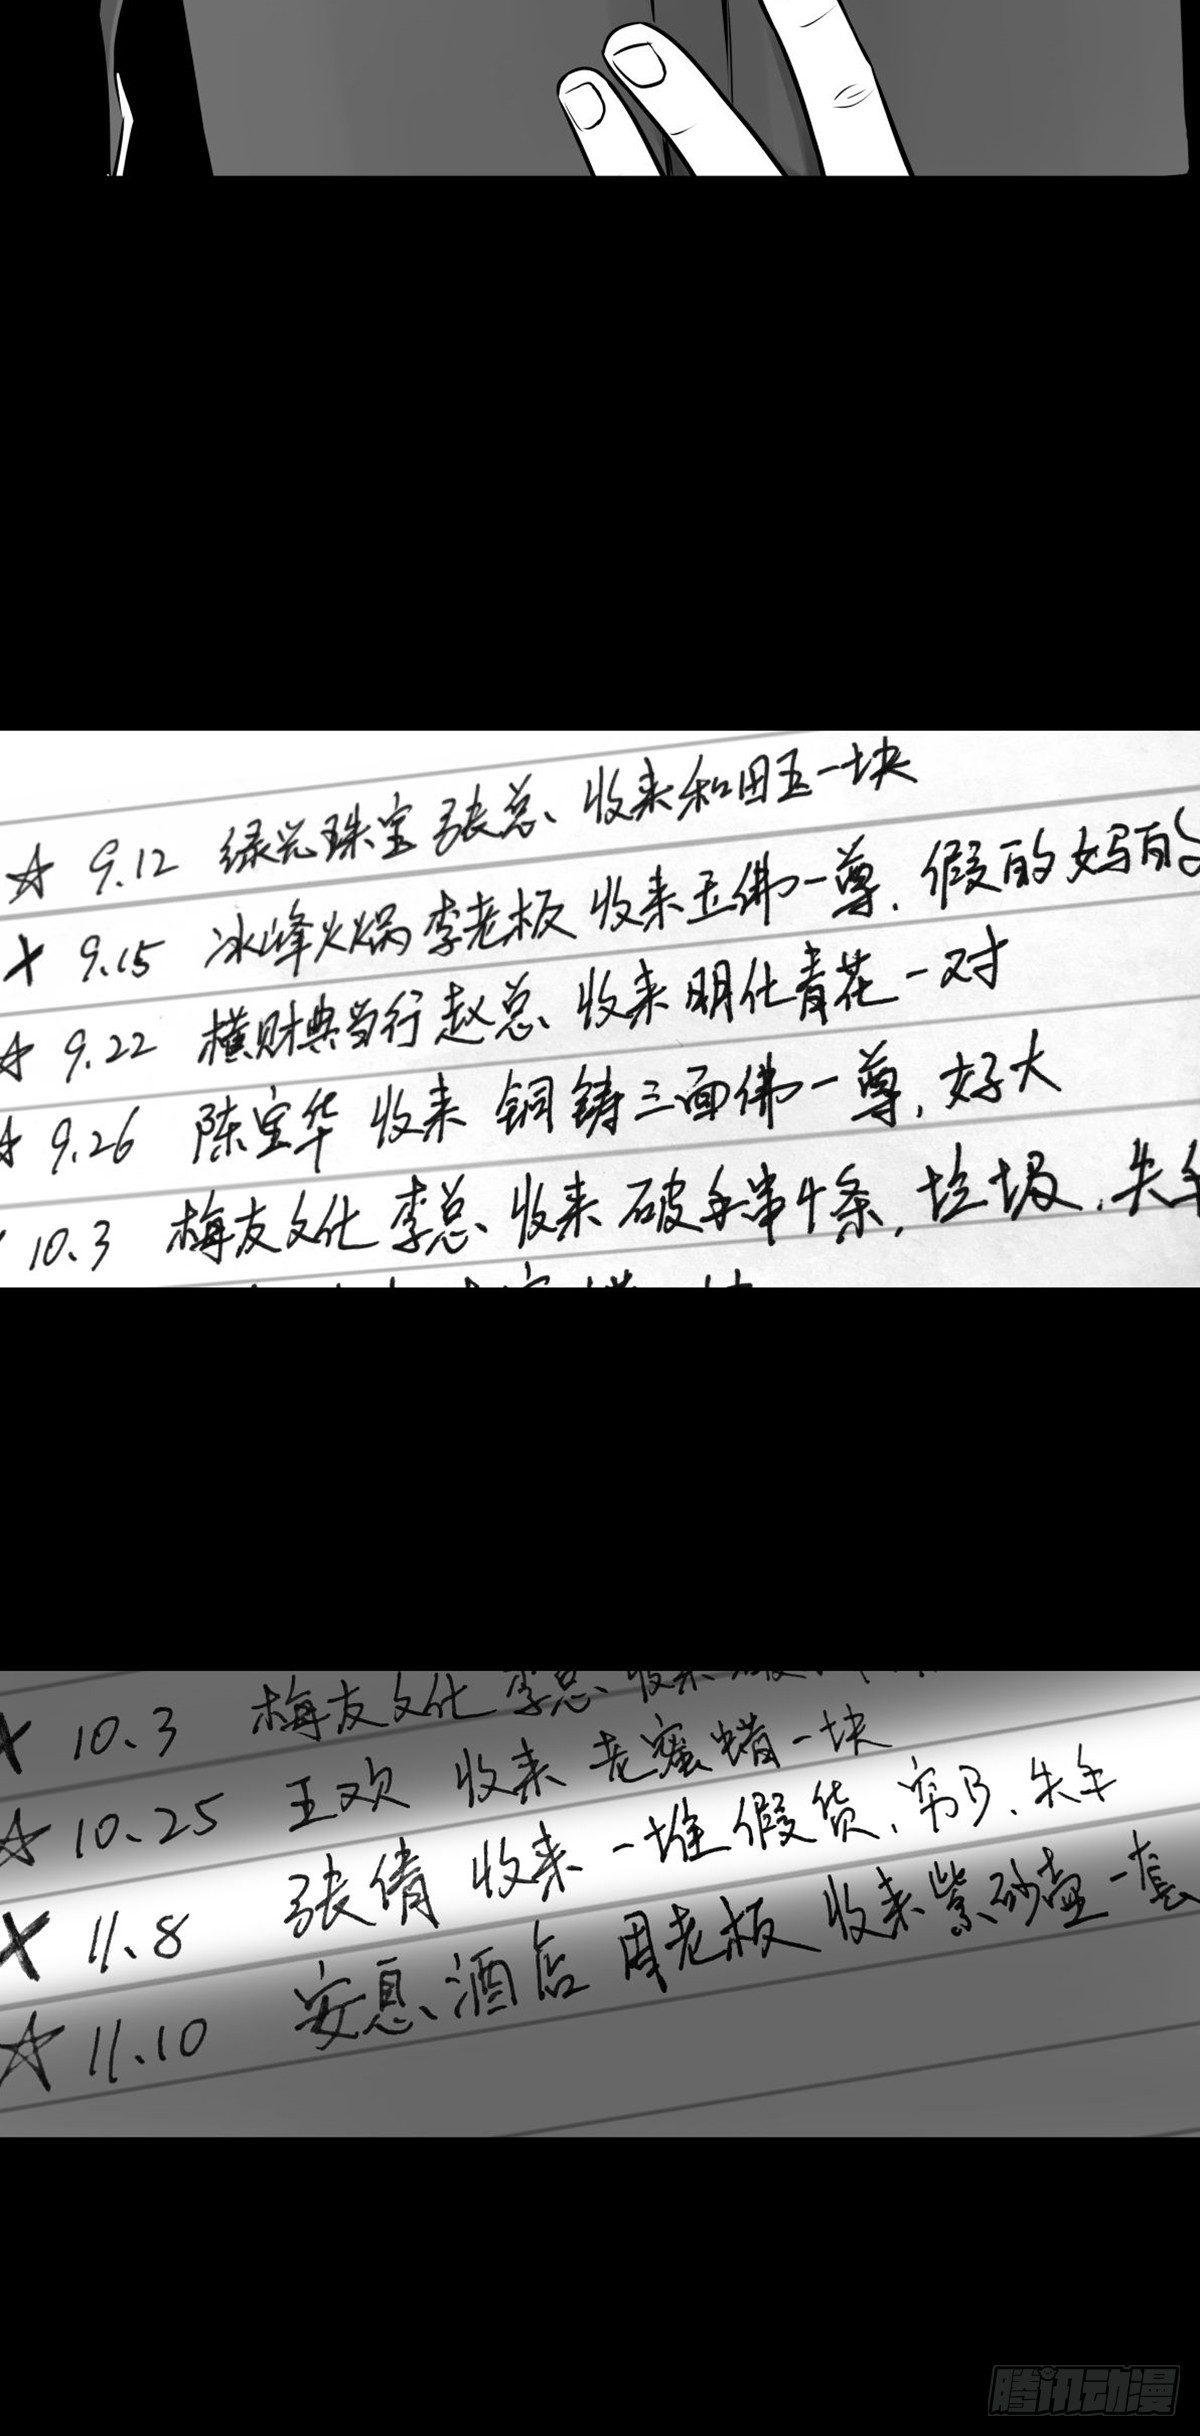 ☆ 9.12 绿光珠宝 张总 收来和田玉一块
X 9.15 冰峰火锅 李老板 收来玉佛一尊, 假的 妈的
☆ 9.22 横财典当行 赵总 收来 明代青花 一对
☆ 9.26 陈宝华 收来 铜铸三面佛一尊, 好大
10.3 梅友文化 李总 收来 破手串4条, 垃圾, 失手
X 10.3 梅友文化 李总 收来
☆ 10.25 王欢 收来 老蜜蜡一块
X 11.8 张倩 收来 一堆假货, 穷B, 失手
☆ 11.10 安息酒店 周老板 收来紫砂壶一套
腾讯动漫